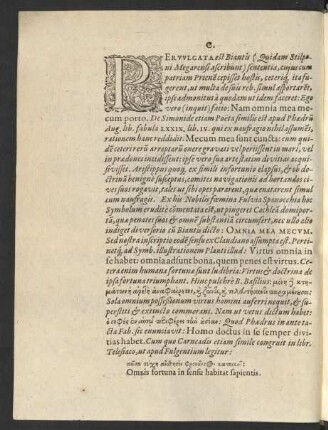 C.
PERVULGATA est Biantis (Quidam Stilpo-
ni Megarensi ascribunt) sententia, cujus cum
patriam Prienē cepisset hostis, ceteriq̃, ita fu-
gerent, ut multa de suis reb. simul asportarēt,
ipse admonitus à quodam ut idem faceret: Ego
vero (inquit) facio: Nam omnia mea me-
cum porto. De Simonide etiam Poeta similis est apud Phædrū
Aug. lib. fabula LXXIX. lib. IV. qui ex naufragio nihil assumēs,
rationem hanc reddidit. Mecum mea sunt cuncta: cum qui-
dē ceteri rerū arreptarū onere gravati vel periissent in mari, vel
in prædones incidissent: ipse vero sua arte statim divitias acqui-
sivisset. Aristippus quoq, ex simili infortunio elapsus, & ob do-
ctrinā benignè susceptus, comites navigationis ad hortandos ci-
ves suos rogavit, tales ut sibi opes pararent, quæ enatarent simul
cum naufragis. Ex his Nobilis fœmina Fulvia Sponvechia hoc
Symbolum eruditè commentata est, ut pingeret Cochleā domipe-
tā, quæ penates suos & omnē substantiā circumfert, nec ullo alio
indiget diversorio cū Biantis dicto: OMNIA MEA MECVM.
Sed nostra inscriptionis sensus ex Claudano assumpta est. Perti-
netq̃, ad Symb. illustrationem Plauti illud: Virtus omnia in
se habet: omnia adsunt bona, quem penes est virtus. Ce-
tera enim humana fortunæ sunt ludibria: Virtus & doctrina de
ipsa fortuna triumphant. Hinc pulchrè B. Basilius:
Sola omnium possessionum virtus homini auferri nequit, & su-
perstiti & extincto commorans. Nam ut vetus dictum habet:
Quod Phædrus in ante ta-
cta Fab. sic enunciavit: Homo doctus in se semper divi-
tias habet. Cum quo Carneadis etiam simile congruit in libr.
Telesiaco, ut apud Fulgentium legitur:
Omnis fortuna in sensu habitat sapientis.